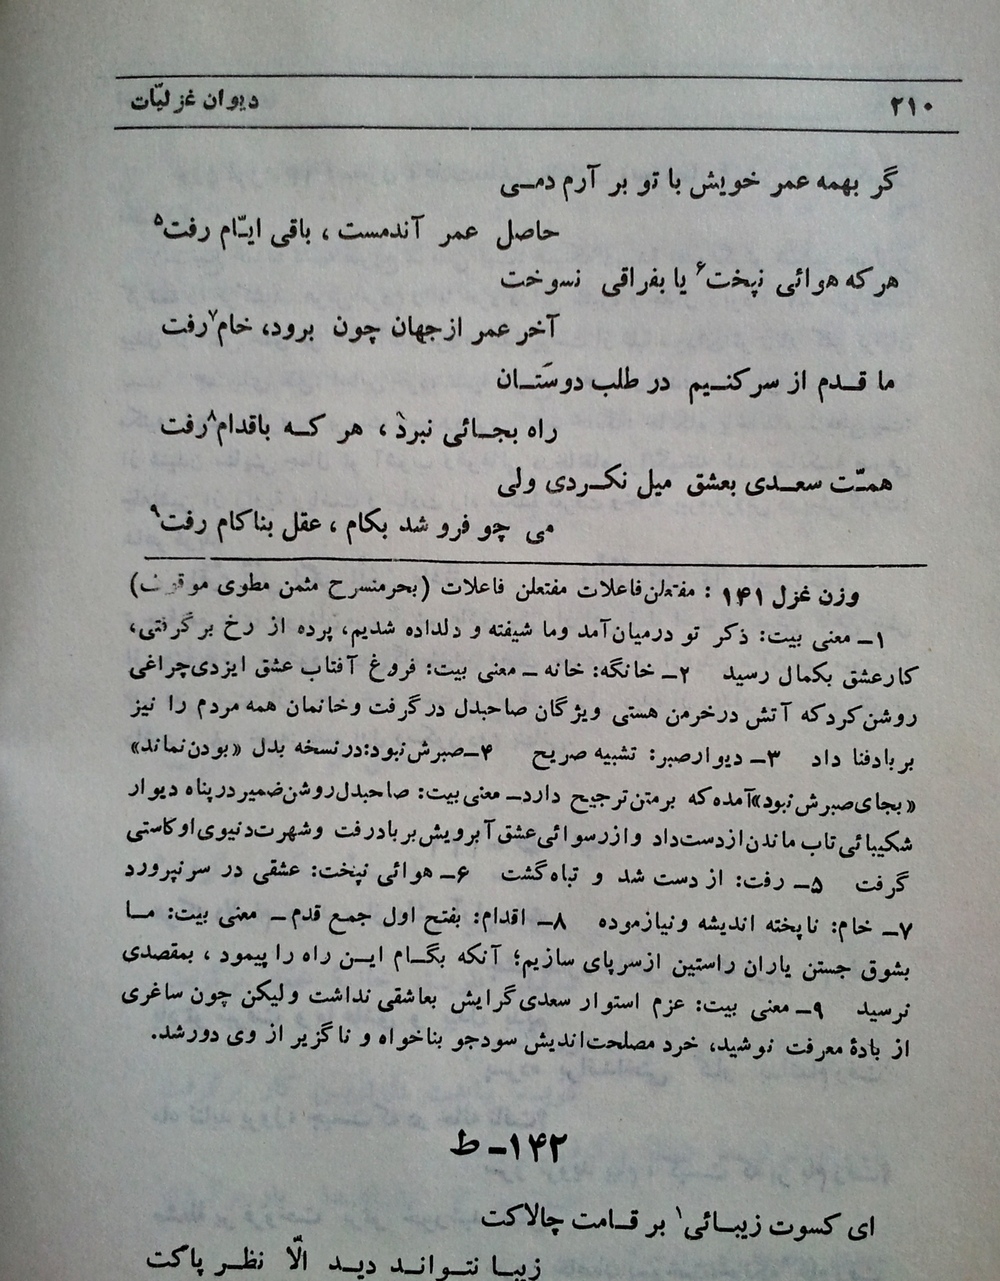 ۲۱۰
دیوان غزلیّات
گر بهمه عمر خویش با تو بر آرم دمی
حاصل عمر آندمست ، باقی ایّام رفت۵
هر که هوائی نپخت۶ یا بفراقی نسوخت
آخر عمر از جهان چون برود، خام۷ رفت
ما قدم از سر کنیم در طلب دوستان
راه بجائی نبرد ، هر که باقدام۸ رفت
همّت سعدی بعشق میل نکردی ولی
می چو فرو شد بکام ، عقل بناکام رفت۹
وزن غزل ۱۴۱ : مفتعلن فاعلات مفتعلن فاعلات (بحر منسرح مثمن مطوی موقوف)
۱ـ معنی بیت: ذکر تو درمیان آمد وما شیفته و دلداده شدیم، پرده از رخ برگرفتی،
کار عشق بکمال رسید ۲ـ خانگه: خانه ـ معنی بیت: فروغ آفتاب عشق ایزدی چراغی
روشن کرد که آتش در خرمن هستی ویژگان صاحبدل در گرفت و خانمان همه مردم را نیز
بر بادفنا داد ۳ـ دیوار صبر: تشبیه صریح ۴ـ صبرش نبود: در نسخه بدل «بودن نماند»
«بجای صبرش نبود» آمده که بر متن ترجیح دارد ـ معنی بیت: صاحبدل روشن ضمیر در پناه دیوار
شکیبائی تاب ماندن از دست داد و از رسوائی عشق آبرویش بر باد رفت و شهرت دنیوی او کاستی
گرفت ۵ـ رفت: از دست شد و تباه گشت ۶ـ هوائی نپخت: عشقی در سر نپرورد
۷ـ خام: ناپخته اندیشه و نیازموده ۸ـ اقدام: بفتح اول جمع قدم ـ معنی بیت: ما
بشوق جستن یاران راستین از سر پای سازیم؛ آنکه بگام این راه را پیمود ، بمقصدی
نرسید ۹ـ معنی بیت: عزم استوار سعدی گرایش بعاشقی نداشت ولیکن چون ساغری
از بادهٔ معرفت نوشید، خرد مصلحت اندیش سودجو بناخواه و ناگزیر از وی دور شد.
۱۴۲ـ ط
ای کسوت زیبائی۱ بر قامت چالاکت
زیبا نتواند دید الّا نظر پاکت